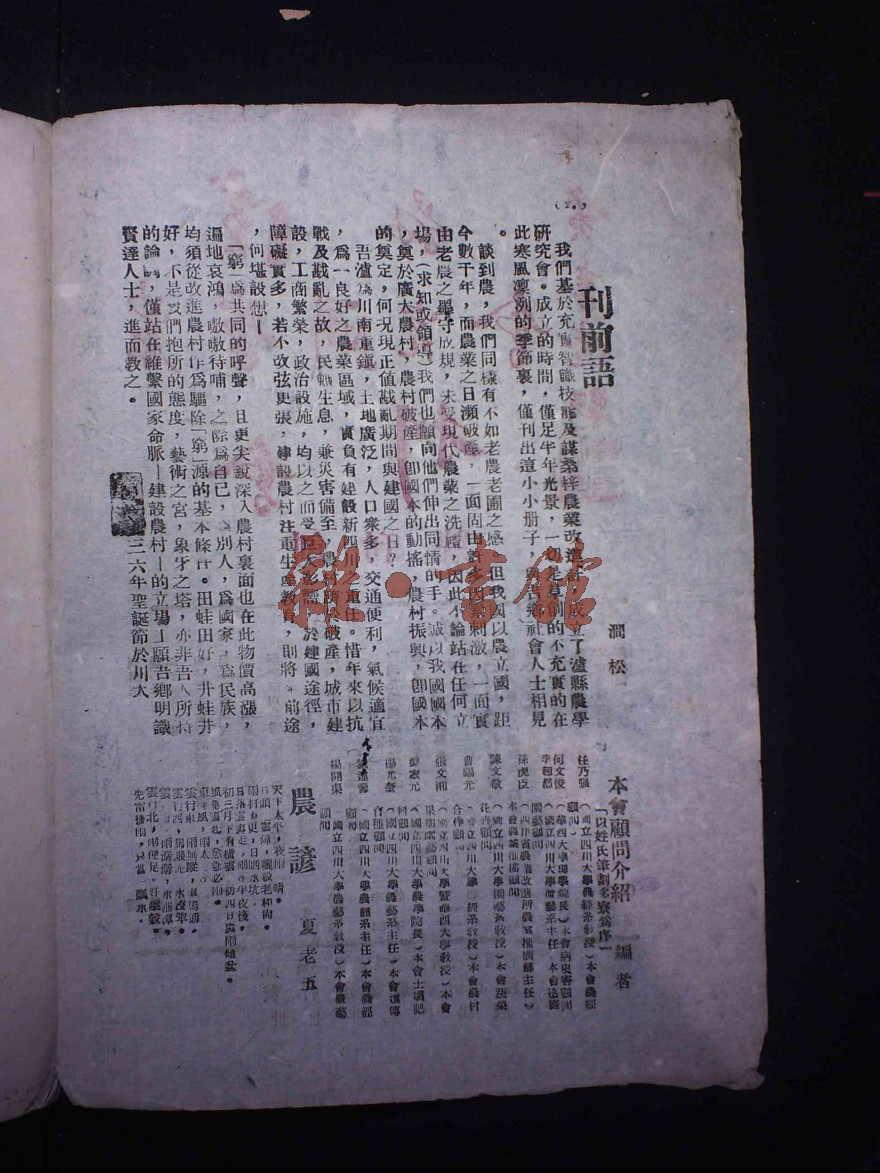 (2)
刊前語
潤松
我們基於充實智識枝能及謀桑梓農業改進計，成立了瀘縣農學
研究會。成立的時間，僅足半年光景，一切是草創的不充實的在
此寒風凜冽的季節裏，僅刊出這小小册子，與吾鄉社會人士相見
。
談到農，我們同樣有不如老農老圃之感，但我國以農立國，距
今數千年，而農業之日瀕破產，一面固由許多因刺激，一面實
由老農之墨守成規，未受現代農業之洗禮，因此不論站在任何立
場，(求知或領導)我們也願向他們伸出同情的手。誠以我國國本
，奠於廣大農村，農村破產，卽國本的動搖，農村振興，卽國本
的奠定，何况現正値戡亂期間與建國之日？
吾瀘爲川南重鎮，土地廣泛，人口衆多，交通便利，氣候適宜
，爲一良好之農業區域，實負有建設新四川之重任。惜年來以抗
戰及戡亂之故，民鮮生息，兼災害備至，農村瀕於破產，城市建
設，工商繁榮，政治設施，均以之而受，於建國途徑，
障礙實多，若不改弦更張，建設農村注重生產教育，則將來前途
，何堪設想！
「窮」爲共同的呼聲，且更尖銳深入農村裏面也在此物價高漲，
遍地哀鴻，嗷嗷待哺，之際爲自己，爲別人，爲國家，爲民族，
均須從改進農村作爲驅除「窮」源的基本條件。田蛙田好，井蛙井
好，不是我們抱所的態度，藝術之宮，象牙之塔，亦非吾人所恃
的論調，僅站在維繫國家命脈—建設農村—的立場，願吾鄉明識
賢達人士，進而教之。
三六年聖誕節於川大
本會顧問介紹
編者
「以姓氏筆劃多寡爲序」
任乃強(國立四川大學農經系教授)本會農經
顧問
何文俊(華西大學理學院長)本會病虫害顧問
李翹都(國立四川大學園藝系主任)本會造庭
園藝顧問
孫虎臣(四川省農業改進所農業推廣部主任)
本會農業推廣顧問
陳文敬(國立四川大學園藝系教授)本會蔬菜
花卉顧問
曹錫光(國立四川大學農經系教授)本會農村
合作顧問
張文湘(國立四川大學暨華西大學教授)本會
果樹園藝顧問
彭家元(國立四川大學農學院長)本會土壤肥
料顧問
楊允奎(國立四川大學農藝系主任)本會遺傳
育種顧問
(國立四川大學農經系主任)本會農經
顧問
楊開渠(國立四川大學農藝系教授)本會農藝
顧問
農諺
夏老五
天下太平，夜雨日晴。
日落雲裏走，雨在半夜後。
初三月下有橫雲，初四日裏雨傾盆。
東風，雨太
雲行東，雨無蹤，車馬通。
雲行西，馬濺泥，水沒犁。
雲行南，雨潺潺，水漲潭。
雲行北，雨便足，好曬穀。